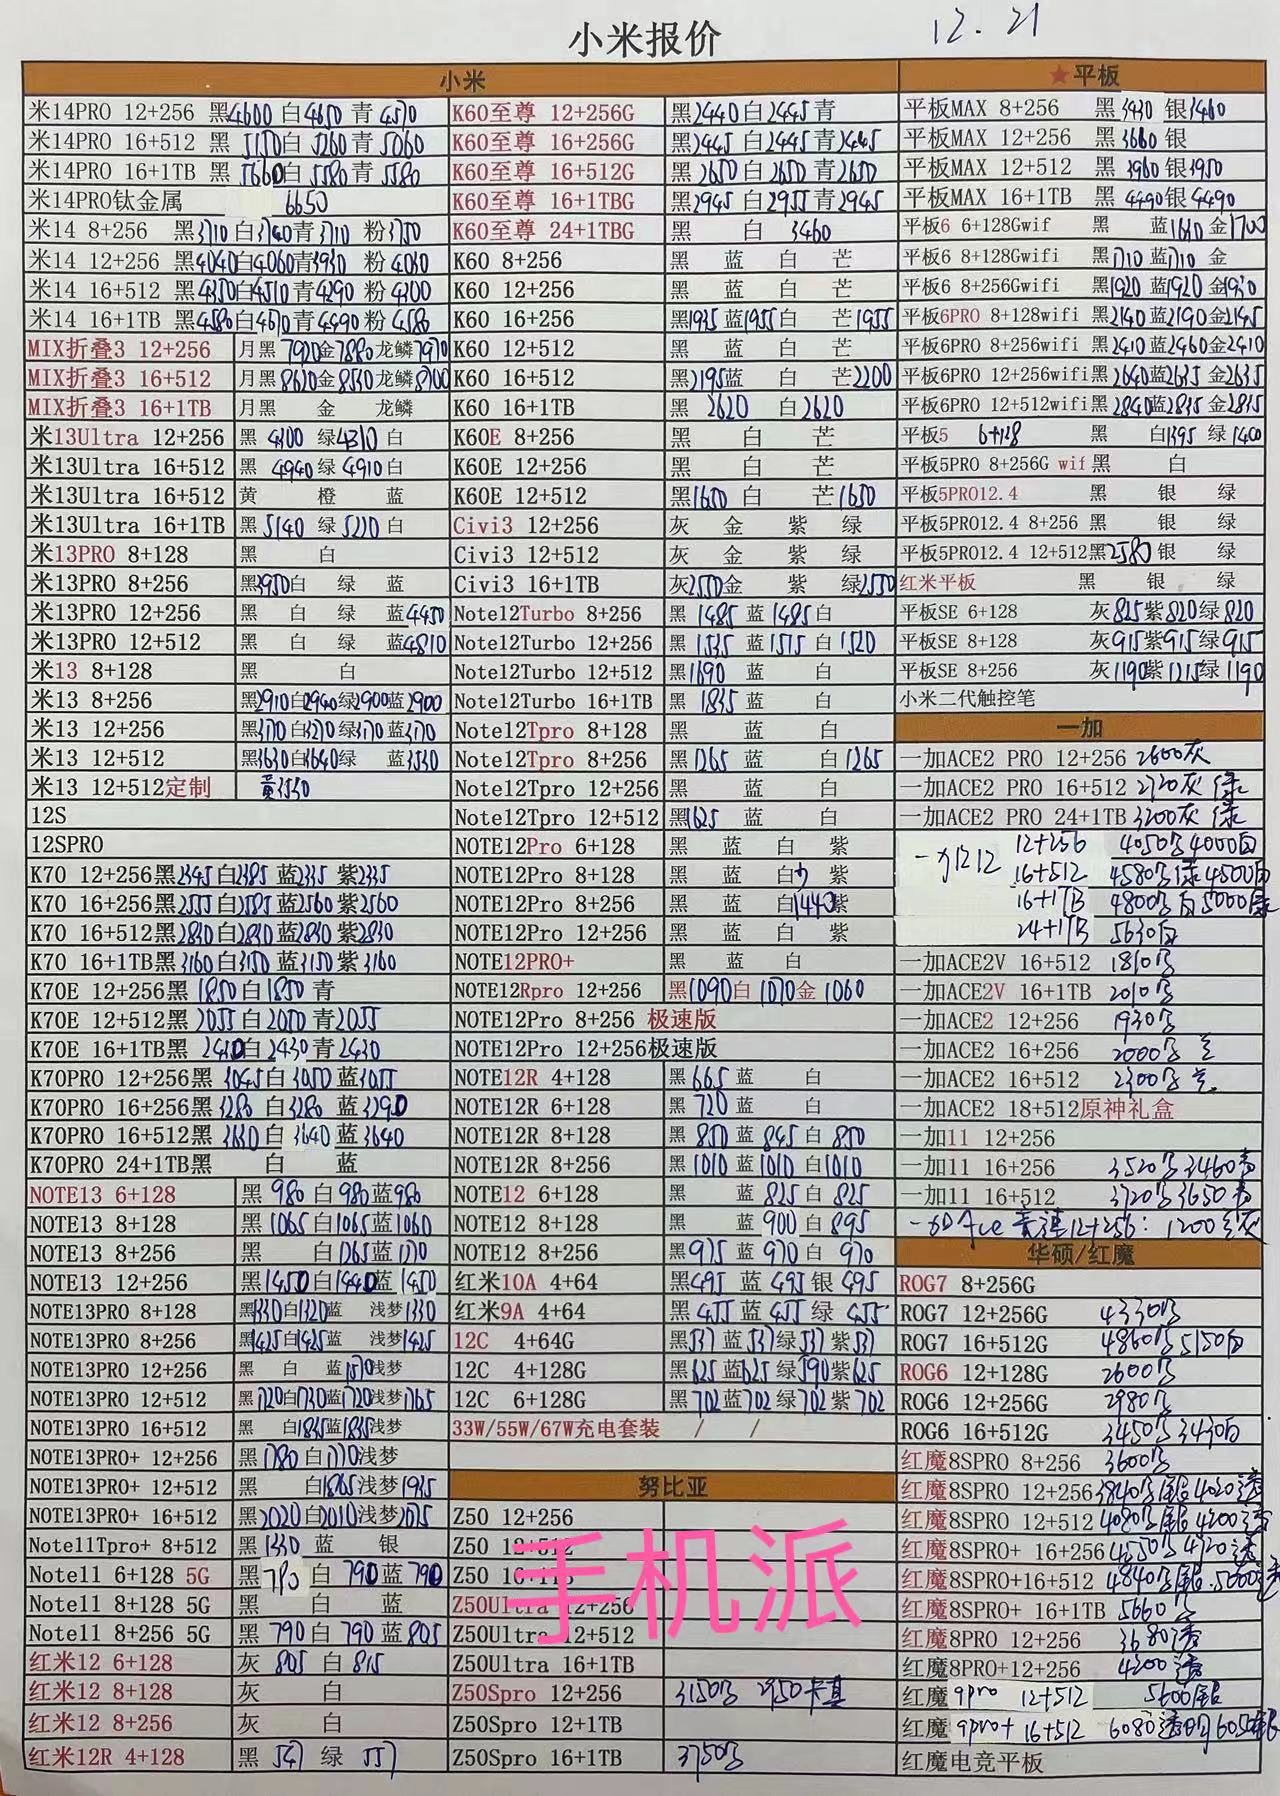 小米报价 12.21
小米
米14PRO 12+256 黑4600 白4650 青4570
米14PRO 16+512 黑5150 白5260 青5060
米14PRO 16+1TB 黑5660 白5580 青5580
米14PRO钛金属 6650
米14 8+256 黑3710 白3740 青3710 粉3750
米14 12+256 黑4040 白4060 青3930 粉4030
米14 16+512 黑4350 白4510 青4290 粉4300
米14 16+1TB 黑4580 白4670 青4490 粉4580
MIX折叠3 12+256 月黑7920 金7880 龙鳞7970
MIX折叠3 16+512 月黑8620 金8530 龙鳞8700
MIX折叠3 16+1TB 月黑 金 龙鳞
米13Ultra 12+256 黑4300 绿4310 白
米13Ultra 16+512 黑4940 绿4910 白
米13Ultra 16+512 黄 橙 蓝
米13Ultra 16+1TB 黑5140 绿5220 白
米13PRO 8+128 黑 白
米13PRO 8+256 黑3950 白 绿 蓝
米13PRO 12+256 黑 白 绿 蓝4450
米13PRO 12+512 黑 白 绿 蓝4810
米13 8+128 黑 白
米13 8+256 黑2910 白2940 绿2900 蓝2900
米13 12+256 黑3170 白3270 绿3170 蓝3170
米13 12+512 黑3630 白3640 绿 蓝3530
米13 12+512定制 黄3550
12S
12SPRO
K70 12+256 黑2345 白2385 蓝2335 紫2335
K70 16+256 黑2555 白2585 蓝2560 紫2560
K70 16+512 黑2830 白2830 蓝2830 紫2830
K70 16+1TB 黑3160 白3150 蓝3150 紫3160
K70E 12+256 黑1850 白1850 青
K70E 12+512 黑2055 白2050 青2055
K70E 16+1TB 黑2430 白2430 青2430
K70PRO 12+256 黑3045 白3050 蓝3055
K70PRO 16+256 黑3280 白3280 蓝3290
K70PRO 16+512 黑3630 白3640 蓝3640
K70PRO 24+1TB 黑 白 蓝
NOTE13 6+128 黑980 白980 蓝980
NOTE13 8+128 黑1065 白1065 蓝1060
NOTE13 8+256 黑 白1265 蓝1270
NOTE13 12+256 黑1450 白1440 蓝1450
NOTE13PRO 8+128 黑1330 白1320 蓝 浅梦1330
NOTE13PRO 8+256 黑1425 白1425 蓝 浅梦1425
NOTE13PRO 12+256 黑 白 蓝1570 浅梦
NOTE13PRO 12+512 黑1720 白1730 蓝1720 浅梦1765
NOTE13PRO 16+512 黑 白1835 蓝1835 浅梦
NOTE13PRO+ 12+256 黑1780 白1770 浅梦
NOTE13PRO+ 12+512 黑 白1865 浅梦1935
NOTE13PRO+ 16+512 黑2020 白2010 浅梦2075
Note11Tpro+ 8+512 黑1330 蓝 银
Note11 6+128 5G 黑780 白790 蓝790
Note11 8+128 5G 黑 白 蓝
Note11 8+256 5G 黑790 白790 蓝805
红米12 6+128 灰805 白815
红米12 8+128 灰 白
红米12 8+256 灰 白
红米12R 4+128 黑547 绿557
K60至尊 12+256G 黑2440 白2445 青
K60至尊 16+256G 黑2445 白2445 青2445
K60至尊 16+512G 黑2650 白2650 青2650
K60至尊 16+1TBG 黑2945 白2955 青2945
K60至尊 24+1TBG 黑 白3460
K60 8+256 黑 蓝 白 芒
K60 12+256 黑 蓝 白 芒
K60 16+256 黑1935 蓝1955 白 芒1955
K60 12+512 黑 蓝 白 芒
K60 16+512 黑2195 蓝 白 芒2200
K60 16+1TB 黑2620 白2620
K60E 8+256 黑 白 芒
K60E 12+256 黑 白 芒
K60E 12+512 黑1650 白 芒1650
Civi3 12+256 灰 金 紫 绿
Civi3 12+512 灰 金 紫 绿
Civi3 16+1TB 灰2550 金 紫 绿2550
Note12Turbo 8+256 黑1485 蓝1485 白
Note12Turbo 12+256 黑1535 蓝1515 白1520
Note12Turbo 12+512 黑1690 蓝 白
Note12Turbo 16+1TB 黑1835 蓝 白
Note12Tpro 8+128 黑 蓝 白
Note12Tpro 8+256 黑1265 蓝 白1265
Note12Tpro 12+256 黑 蓝 白
Note12Tpro 12+512 黑1625 蓝 白
NOTE12Pro 6+128 黑 蓝 白 紫
NOTE12Pro 8+128 黑 蓝 白 紫
NOTE12Pro 8+256 黑 蓝 白1440 紫
NOTE12Pro 12+256 黑 蓝 白 紫
NOTE12PRO+ 黑 蓝 白
NOTE12Rpro 12+256 黑1090 白1070 金1060
NOTE12Pro 8+256 极速版
NOTE12Pro 12+256极速版
NOTE12R 4+128 黑665 蓝 白
NOTE12R 6+128 黑720 蓝 白
NOTE12R 8+128 黑850 蓝845 白850
NOTE12R 8+256 黑1010 蓝1010 白1010
NOTE12 6+128 黑 蓝825 白825
NOTE12 8+128 黑 蓝900 白895
NOTE12 8+256 黑975 蓝970 白970
红米10A 4+64 黑495 蓝495 银495
红米9A 4+64 黑455 蓝455 绿455
12C 4+64G 黑537 蓝537 绿537 紫537
12C 4+128G 黑625 蓝625 绿590 紫625
12C 6+128G 黑702 蓝702 绿702 紫702
33W/55W/67W充电套装 / /
努比亚
Z50 12+256
Z50 12+512
Z50 16+1T
Z50Ultra 12+256
Z50Ultra 12+512
Z50Ultra 16+1TB
Z50Spro 12+256 3150
Z50Spro 12+1TB
Z50Spro 16+1TB 3750
手机派
★平板
平板MAX 8+256 黑3430 银3460
平板MAX 12+256 黑3660 银
平板MAX 12+512 黑3960 银3950
平板MAX 16+1TB 黑4490 银4490
平板6 6+128Gwif 黑 蓝1690 金1700
平板6 8+128Gwifi 黑1710 蓝1710 金
平板6 8+256Gwifi 黑1920 蓝1920 金1930
平板6PRO 8+128wifi 黑2140 蓝2190 金2145
平板6PRO 8+256wifi 黑2410 蓝2460 金2410
平板6PRO 12+256wifi 黑2640 蓝2635 金2635
平板6PRO 12+512wifi 黑2840 蓝2835 金2835
平板5 6+128 黑 白1395 绿1400
平板5PRO 8+256G wif 黑 白
平板5PRO12.4 黑 银 绿
平板5PRO12.4 8+256 黑 银 绿
平板5PRO12.4 12+512 黑2580 银 绿
红米平板 黑 银 绿
平板SE 6+128 灰825 紫820 绿820
平板SE 8+128 灰915 紫915 绿915
平板SE 8+256 灰1190 紫1215 绿1190
小米二代触控笔
一加
一加ACE2 PRO 12+256 2600灰
一加ACE2 PRO 16+512 2720灰 绿
一加ACE2 PRO 24+1TB 3200灰 绿
一加12 12+256 4050 4000白
16+512 4580 绿 4500白
16+1TB 4800 白 5000绿
24+1TB 5630白
一加ACE2V 16+512 1810
一加ACE2V 16+1TB 2010
一加ACE2 12+256 1930
一加ACE2 16+256 2000
一加ACE2 16+512 2300
一加ACE2 18+512原神礼盒
一加11 12+256
一加11 16+256 3520 3460青
一加11 16+512 3720 3650青
一加Ace 竞速12+256: 1200
华硕/红魔
ROG7 8+256G
ROG7 12+256G 4330
ROG7 16+512G 4860 5150白
ROG6 12+128G 2600
ROG6 12+256G 2980
ROG6 16+512G 3450 3430白
红魔8SPRO 8+256 3600
红魔8SPRO 12+256 3840 银 4020透
红魔8SPRO 12+512 4080 银 4200透
红魔8SPRO+ 16+256 4550 4720透
红魔8SPRO+16+512 4840 银 5000透
红魔8SPRO+ 16+1TB 5660
红魔8PRO 12+256 3680透
红魔8PRO+12+256 4200透
红魔9pro 12+512 5600银
红魔9pro+ 16+512 6080透明 6050银
红魔电竞平板